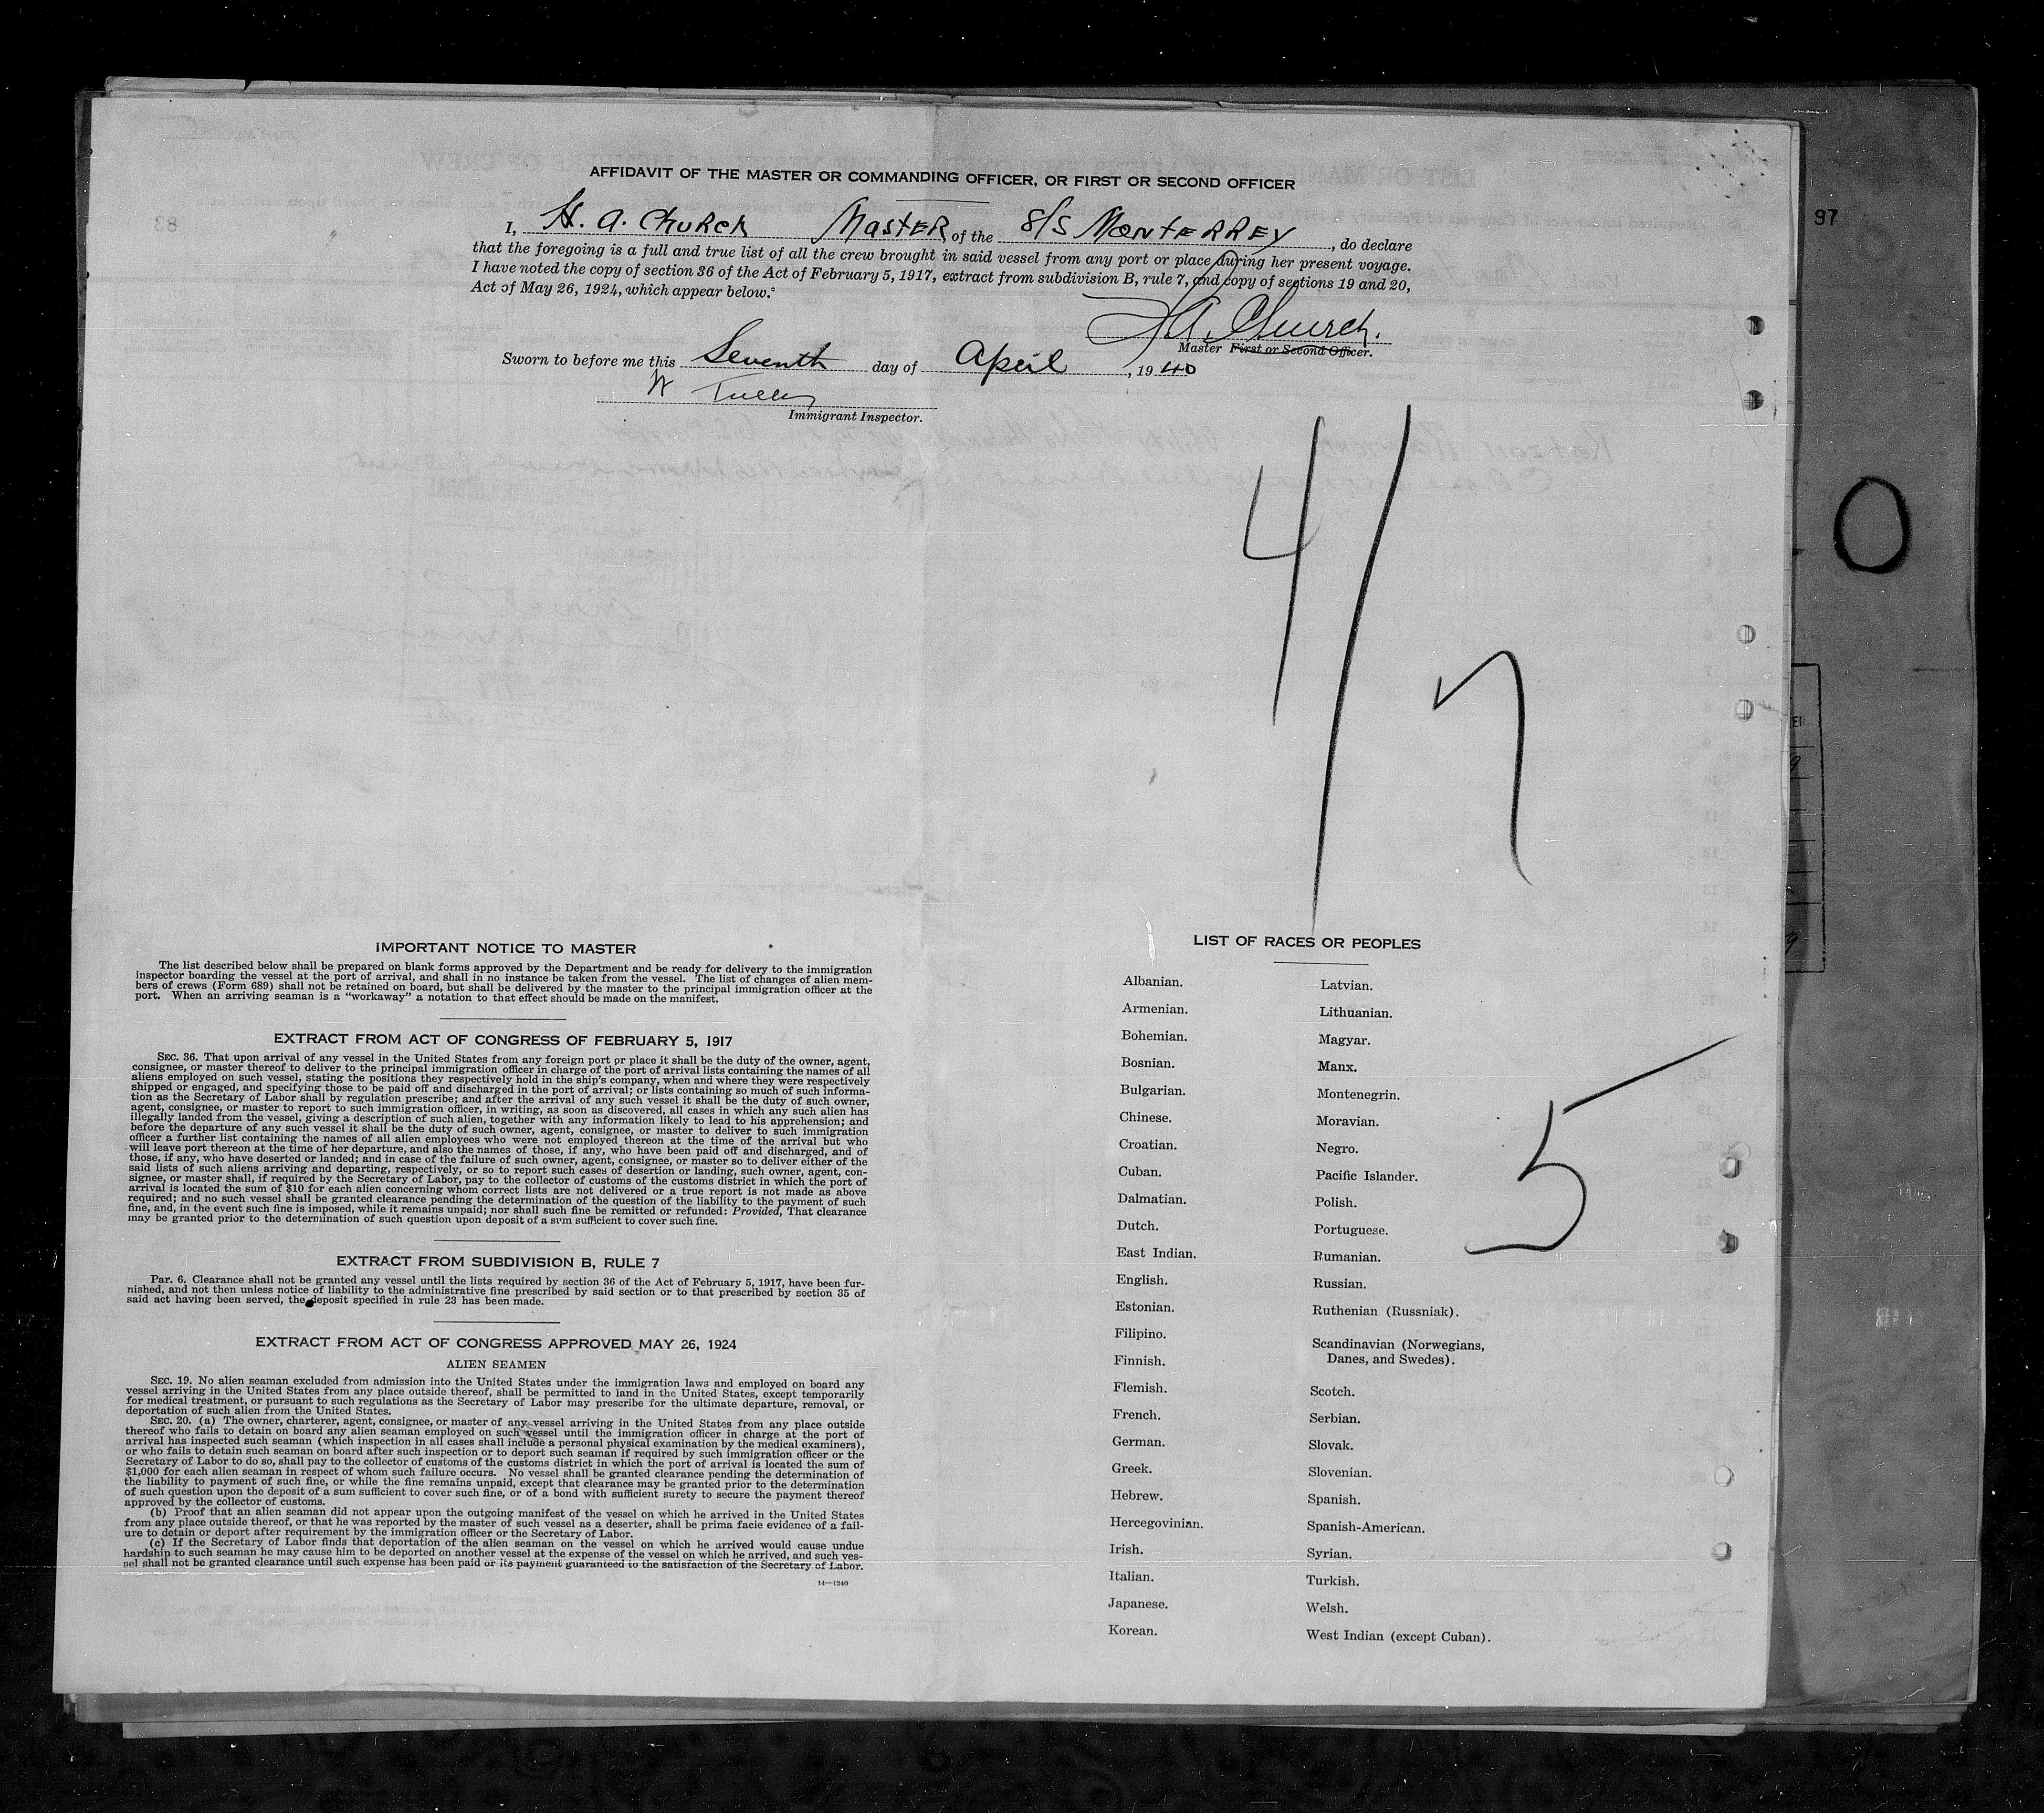 AFFIDAVIT OF THE MASTER OR COMMANDING OFFICER, OR FIRST OR SECOND OFFICER
I, H. A. Church Master of the S/S Monterrey, do declare
that the foregoing is a full and true list of all the crew brought in said vessel from any port or place during her present voyage.
I have noted the copy of section 36 of the Act of February 5, 1917, extract from subdivision B, rule 7, and copy of sections 19 and 20,
Act of May 26, 1924, which appear below.
H A. Church.
Master First or Second Officer.
Sworn to before me this Seventh day of April, 1940
Immigrant Inspector.
97
4/7
O
5
IMPORTANT NOTICE TO MASTER
The list described below shall be prepared on blank forms approved by the Department and be ready for delivery to the immigration
inspector boarding the vessel at the port of arrival, and shall in no instance be taken from the vessel. The list of changes of alien mem-
bers of crews (Form 689) shall not be retained on board, but shall be delivered by the master to the principal immigration officer at the
port. When an arriving seaman is a "workaway" a notation to that effect should be made on the manifest.
EXTRACT FROM ACT OF CONGRESS OF FEBRUARY 5, 1917
SEC. 36. That upon arrival of any vessel in the United States from any foreign port or place it shall be the duty of the owner, agent,
consignee, or master thereof to deliver to the principal immigration officer in charge of the port of arrival lists containing the names of all
aliens employed on such vessel, stating the positions they respectively hold in the ship's company, when and where they were respectively
shipped or engaged, and specifying those to be paid off and discharged in the port of arrival; or lists containing so much of such informa-
tion as the Secretary of Labor shall by regulation prescribe; and after the arrival of any such vessel it shall be the duty of such owner,
agent, consignee, or master to report to such immigration officer, in writing, as soon as discovered, all cases in which any such alien has
illegally landed from the vessel, giving a description of such alien, together with any information likely to lead to his apprehension; and
before the departure of any such vessel it shall be the duty of such owner, agent, consignee, or master to deliver to such immigration
officer a further list containing the names of all alien employees who were not employed thereon at the time of the arrival but who
will leave port thereon at the time of her departure, and also the names of those, if any, who have been paid off and discharged, and of
those, if any, who have deserted or landed; and in case of the failure of such owner, agent, consignee, or master so to deliver either of the
said lists of such aliens arriving and departing, respectively, or so to report such cases of desertion or landing, such owner, agent, con-
signee, or master shall, if required by the Secretary of Labor, pay to the collector of customs of the customs district in which the port of
arrival is located the sum of $10 for each alien concerning whom correct lists are not delivered or a true report is not made as above
required; and no such vessel shall be granted clearance pending the determination of the question of the liability to the payment of such
fine, and, in the event such fine is imposed, while it remains unpaid; nor shall such fine be remitted or refunded: Provided, That clearance
may be granted prior to the determination of such question upon deposit of a sum sufficient to cover such fine.
EXTRACT FROM SUBDIVISION B, RULE 7
Par. 6. Clearance shall not be granted any vessel until the lists required by section 36 of the Act of February 5, 1917, have been fur-
nished, and not then unless notice of liability to the administrative fine prescribed by said section or to that prescribed by section 35 of
said act having been served, the deposit specified in rule 23 has been made.
EXTRACT FROM ACT OF CONGRESS APPROVED MAY 26, 1924
ALIEN SEAMEN
SEC. 19. No alien seaman excluded from admission into the United States under the immigration laws and employed on board any
vessel arriving in the United States from any place outside thereof, shall be permitted to land in the United States, except temporarily
for medical treatment, or pursuant to such regulations as the Secretary of Labor may prescribe for the ultimate departure, removal, or
deportation of such alien from the United States.
SEC. 20. (a) The owner, charterer, agent, consignee, or master of any vessel arriving in the United States from any place outside
thereof who fails to detain on board any alien seaman employed on such vessel until the immigration officer in charge at the port of
arrival has inspected such seaman (which inspection in all cases shall include a personal physical examination by the medical examiners),
or who fails to detain such seaman on board after such inspection or to deport such seaman if required by such immigration officer or the
Secretary of Labor to do so, shall pay to the collector of customs of the customs district in which the port of arrival is located the sum of
$1,000 for each alien seaman in respect of whom such failure occurs. No vessel shall be granted clearance pending the determination of
the liability to payment of such fine, or while the fine remains unpaid, except that clearance may be granted prior to the determination
of such question upon the deposit of a sum sufficient to cover such fine, or of a bond with sufficient surety to secure the payment thereof
approved by the collector of customs.
(b) Proof that an alien seaman did not appear upon the outgoing manifest of the vessel on which he arrived in the United States
from any place outside thereof, or that he was reported by the master of such vessel as a deserter, shall be prima facie evidence of a fail-
ure to detain or deport after requirement by the immigration officer or the Secretary of Labor.
(c) If the Secretary of Labor finds that deportation of the alien seaman on the vessel on which he arrived would cause undue
hardship to such seaman he may cause him to be deported on another vessel at the expense of the vessel on which he arrived, and such ves-
sel shall not be granted clearance until such expense has been paid or its payment guaranteed to the satisfaction of the Secretary of Labor.
14—1240
LIST OF RACES OR PEOPLES
Albanian.
Armenian.
Bohemian.
Bosnian.
Bulgarian.
Chinese.
Croatian.
Cuban.
Dalmatian.
Dutch.
East Indian.
English.
Estonian.
Filipino.
Finnish.
Flemish.
French.
German.
Greek.
Hebrew.
Hercegovinian.
Irish.
Italian.
Japanese.
Korean.
Latvian.
Lithuanian.
Magyar.
Manx.
Montenegrin.
Moravian.
Negro.
Pacific Islander.
Polish.
Portuguese.
Rumanian.
Russian.
Ruthenian (Russniak).
Scandinavian (Norwegians,
Danes, and Swedes).
Scotch.
Serbian.
Slovak.
Slovenian.
Spanish.
Spanish-American.
Syrian.
Turkish.
Welsh.
West Indian (except Cuban).